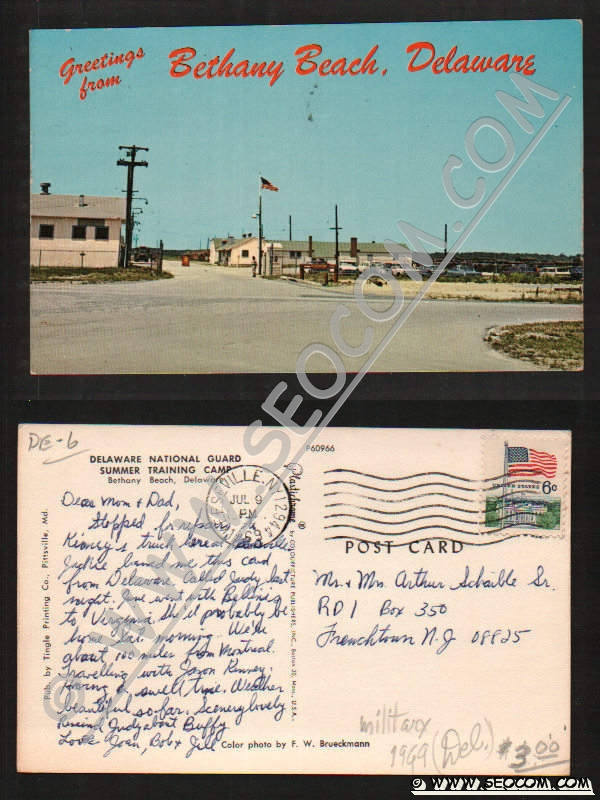 Greetings
from
Bethany Beach, Delaware
WWW.SEOCOM.COM
DE-6
DELAWARE NATIONAL GUARD
SUMMER TRAINING CAMP
Bethany Beach, Delaware
P60966
Dear Mom & Dad,
Stopped for repairs,
Kinney's truck broke
Jackie loaned me this card
from Delaware. Called Judy last
night. June went with
to Virginia. She'll probably be
home Sat. morning. We're
about 100 miles from Montreal.
Travelling with Jason Kinney.
Having a swell time. Weather
beautiful so far. Scenery lovely
Remind Judy about Buffy
Love Joan, Bob & Jill
Color photo by F. W. Brueckmann
Pub. by Tingle Printing Co., Pittsville, Md.
Plastichrome ®
by COLOURPICTURE PUBLISHERS, INC., Boston 30, Mass., U.S.A.
JUL 9
PM
12944
UNITED STATES
6c
POST CARD
Mr. & Mrs. Arthur Schaible Sr.
RD 1 Box 350
Frenchtown N.J 08825
military
1969 (Del.) $3.00
© WWW.SEOCOM.COM